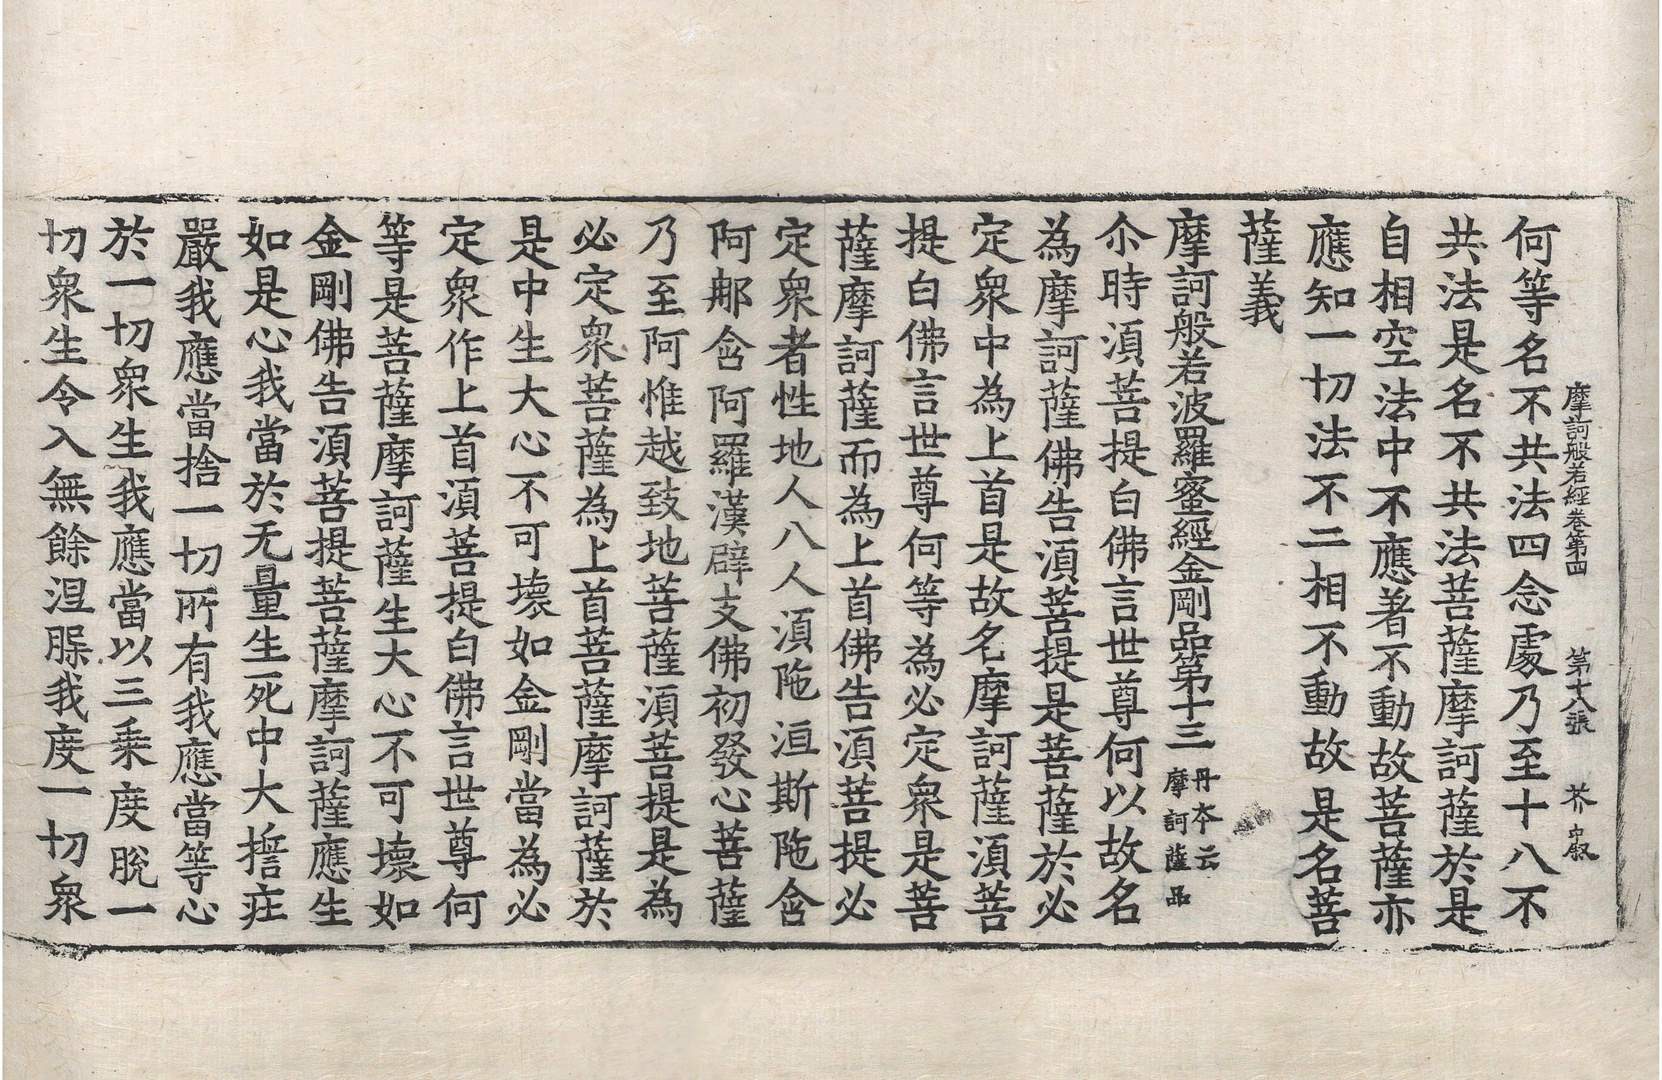 摩訶般若經卷第四 第十八張 芥
何等名不共法四念處乃至十八不
共法是名不共法菩薩摩訶薩於是
自相空法中不應著不動故菩薩亦
應知一切法不二相不動故是名菩
薩義
摩訶般若波羅蜜經金剛品第十三 丹夲云
摩訶薩品
尒時湏菩提白佛言世尊何以故名
為摩訶薩佛告湏菩提是菩薩於必
定衆中為上首是故名摩訶薩湏菩
提白佛言世尊何等為必定衆是菩
薩摩訶薩而為上首佛告湏菩提必
定衆者性地人八人湏陁洹斯陁含
阿那含阿羅漢辟支佛初發心菩薩
乃至阿惟越致地菩薩湏菩提是為
必定衆菩薩為上首菩薩摩訶薩於
是中生大心不可壞如金剛當為必
定衆作上首湏菩提白佛言世尊何
等是菩薩摩訶薩生大心不可壞如
金剛佛告湏菩提菩薩摩訶薩應生
如是心我當於无量生死中大誓莊
嚴我應當捨一切所有我應當等心
於一切衆生我應當以三乘度脫一
切衆生令入無餘涅槃我度一切衆